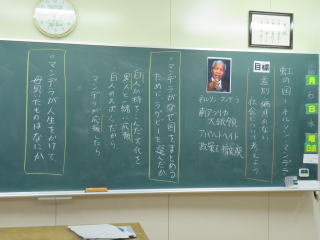 虹の国－ネルソン・マンデラ
目標
差別、偏見のない
社会について考えよう
ネルソン・マンデラ
南アフリカ
大統領
アパルトヘイト
政策を撤廃
○マンデラがなぜ国をまとめる
ためにラグビーを選んだか
白人が持ちこんだ文化を
黒人と一緒に応援
白人のスポーツだから
マンデラが応援したら
○マンデラが人生をかけて
貫いたものはなにか
月
日